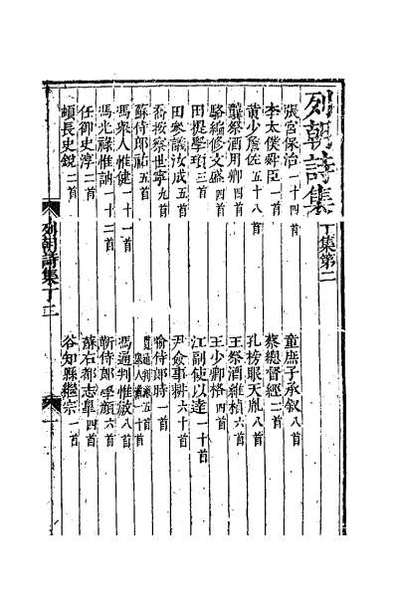 列朝詩集 丁集第二
張宮保治一十四首 童庶子承叙八首
李太僕舜臣一首 蔡總督經二首
黄少詹佐五十八首 孔榜眼天胤八首
龔祭酒用卿四首 王祭酒維楨六首
駱編修文盛四首 王少卿格四首
田提學頊三首 江副使以達一十首
田參議汝成五首 尹僉事耕六十首
喬按察世寧九首 喻侍郎時一首
蘇侍郎祐五首
馮舉人惟健一十一首 馮通判惟敏八首
馮光祿惟訥一十二首 靳侍郎學顔六首
任御史淳二首 蘇右都志皋四首
頓長史銳二首 谷知縣繼宗一首
列朝詩集丁二